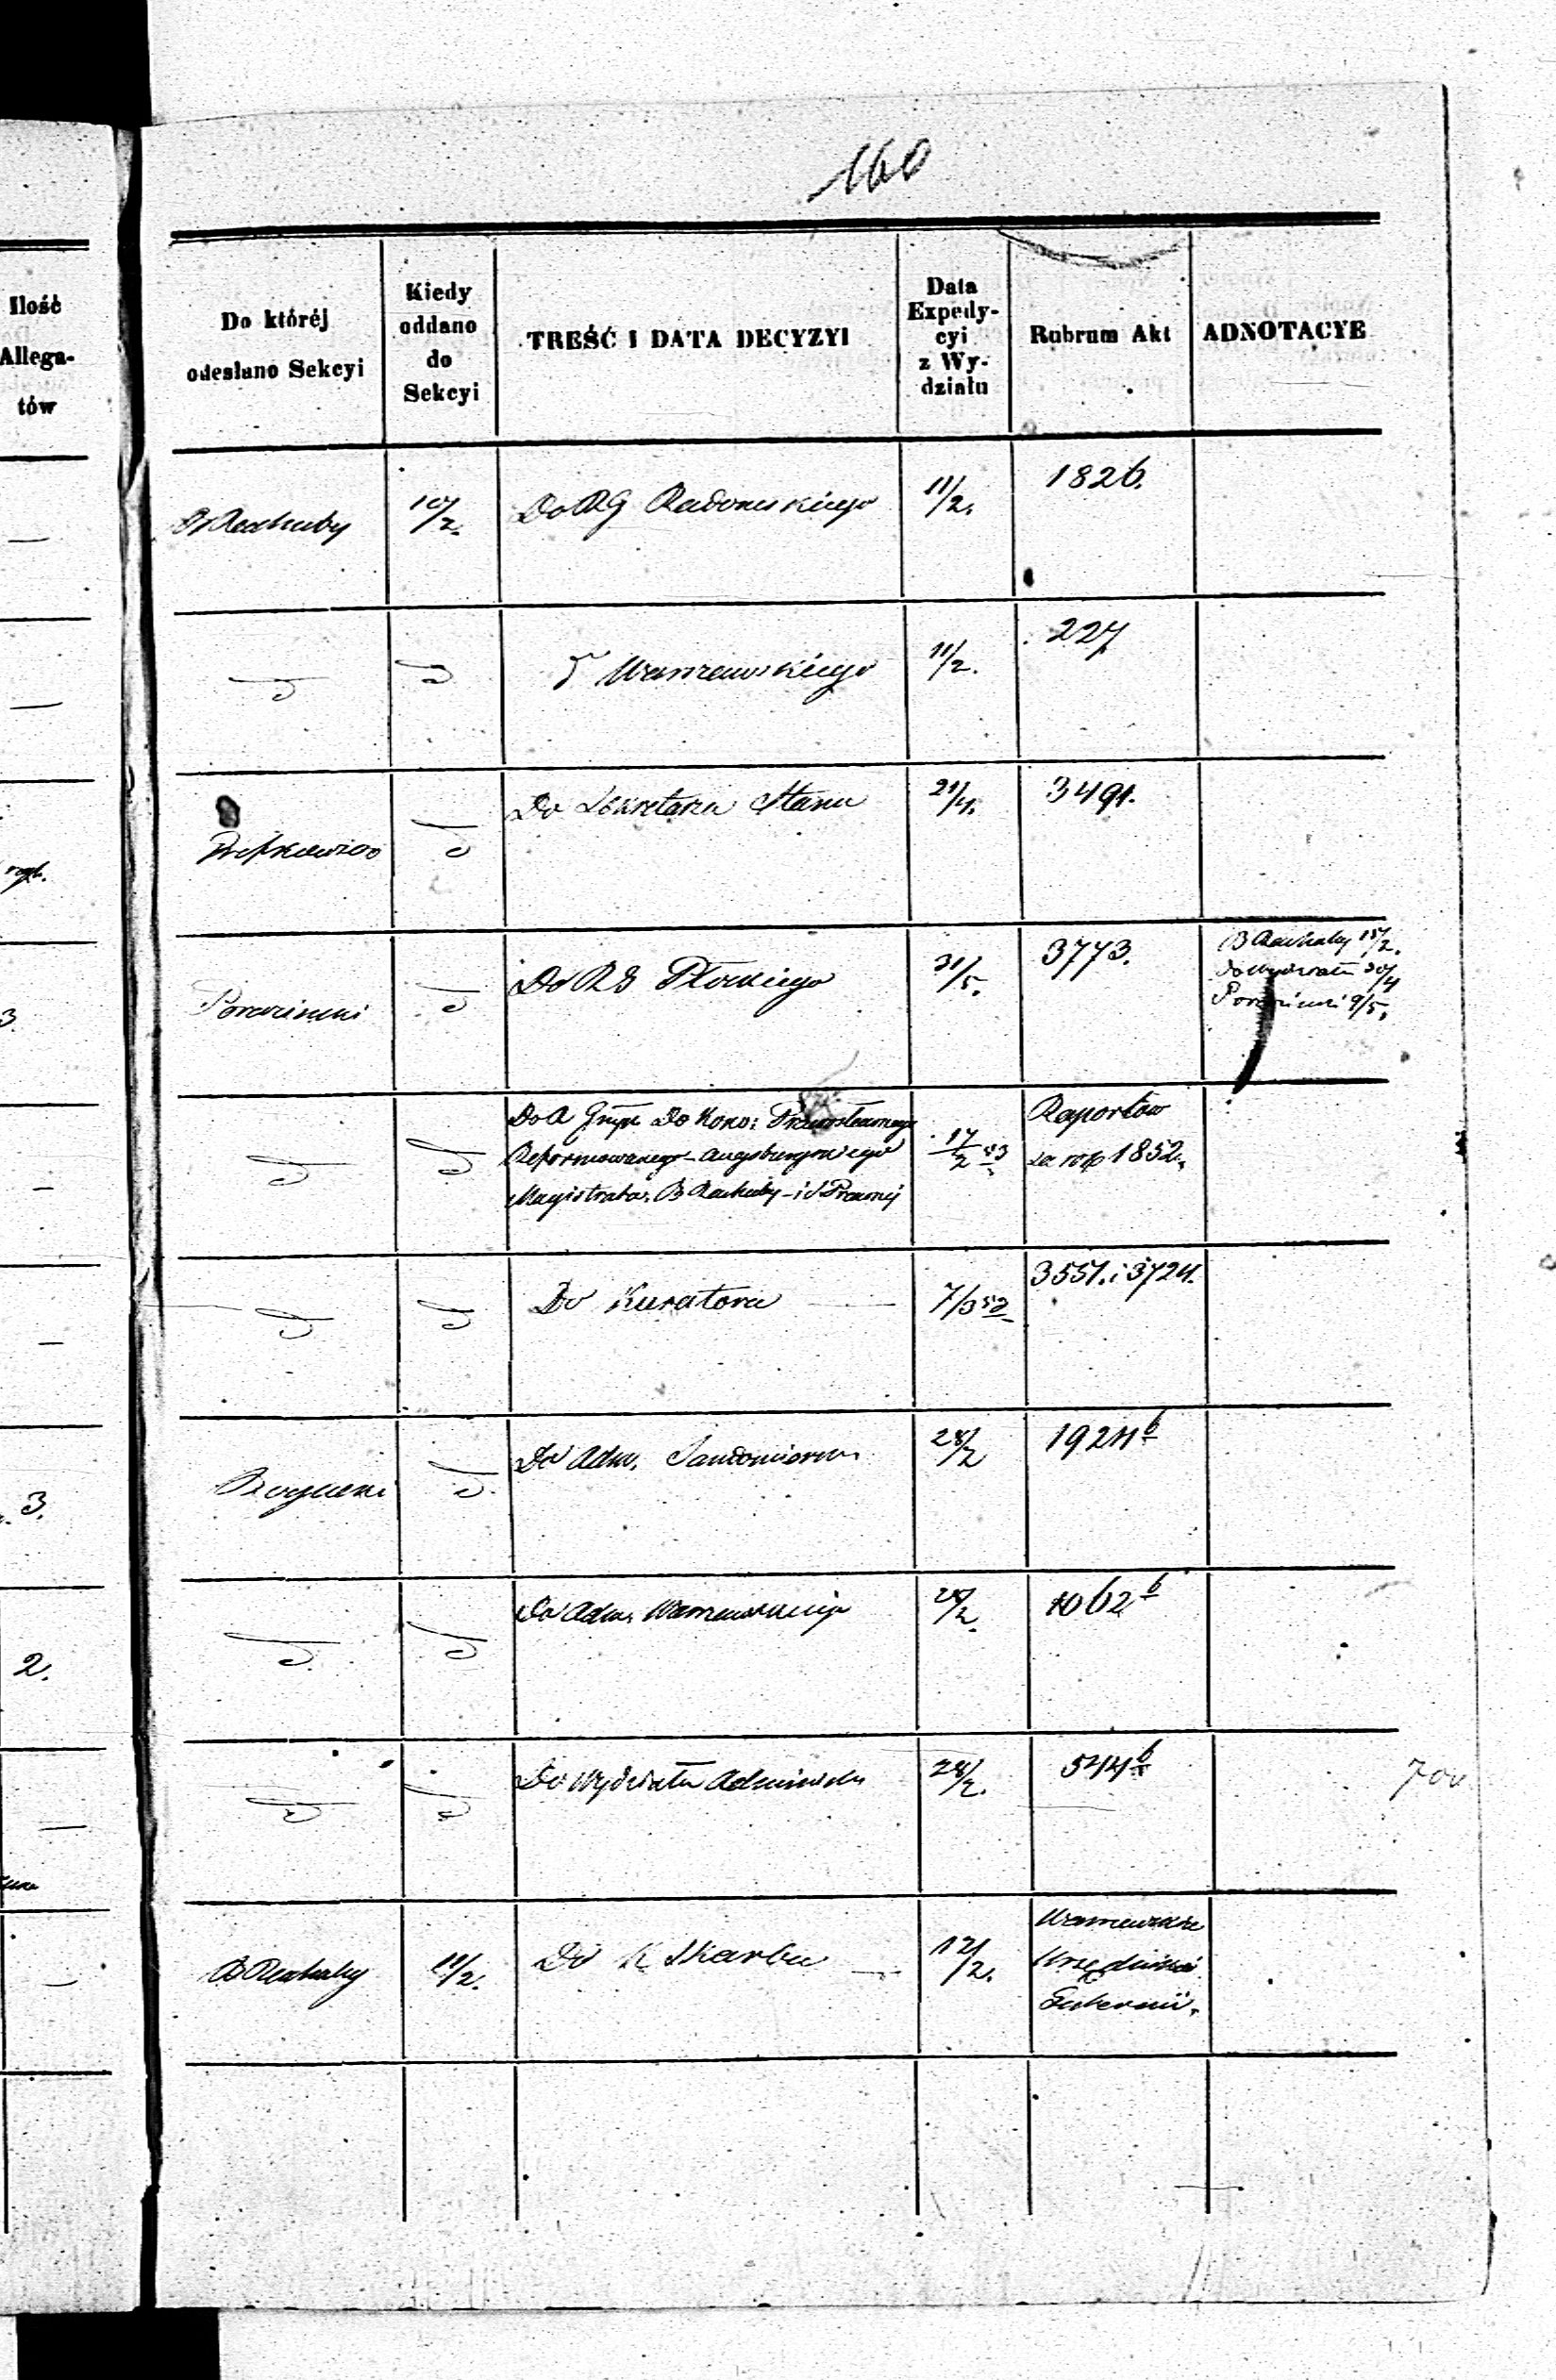 160
Ilość
Allega-
tów
Do któréj
odesłano Sekcyi
Kiedy
oddano
do
Sekcyi
TREŚĆ I DATA DECYZYI
Data
Expedy-
cyi
z Wy-
działu
Rubrum Akt
ADNOTACYE
B Rachuby
10/2.
Do RG Radomskiego
11/2.
1826.
Warszawskiego
11/2.
227
Do Sekretarza Stanu
21/4.
3491.
3
Do RG Płockiego
31/5.
3773.
B Rachuby 15/2.
do Wydziału 30/4
9/5.
Do Kons:
Reformowanego - Augsburgskiego
Magistratu, B Rachuby - i S Prawnej
17/2 53
Raportów
za rok 1852.
Do Kuratora
7/3 52
3557. i 3724.
3.
Do Adm. Sandomiersk
28/2
1924 b
2.
Do Adm. Warszawskiego
28/2.
1062 b
Do Wydziału Administr
28/2.
544 b
700
B Rachuby
11/2.
Do K Skarbu
12/2.
Warszawskie
Urzędnicy
Gubernii.